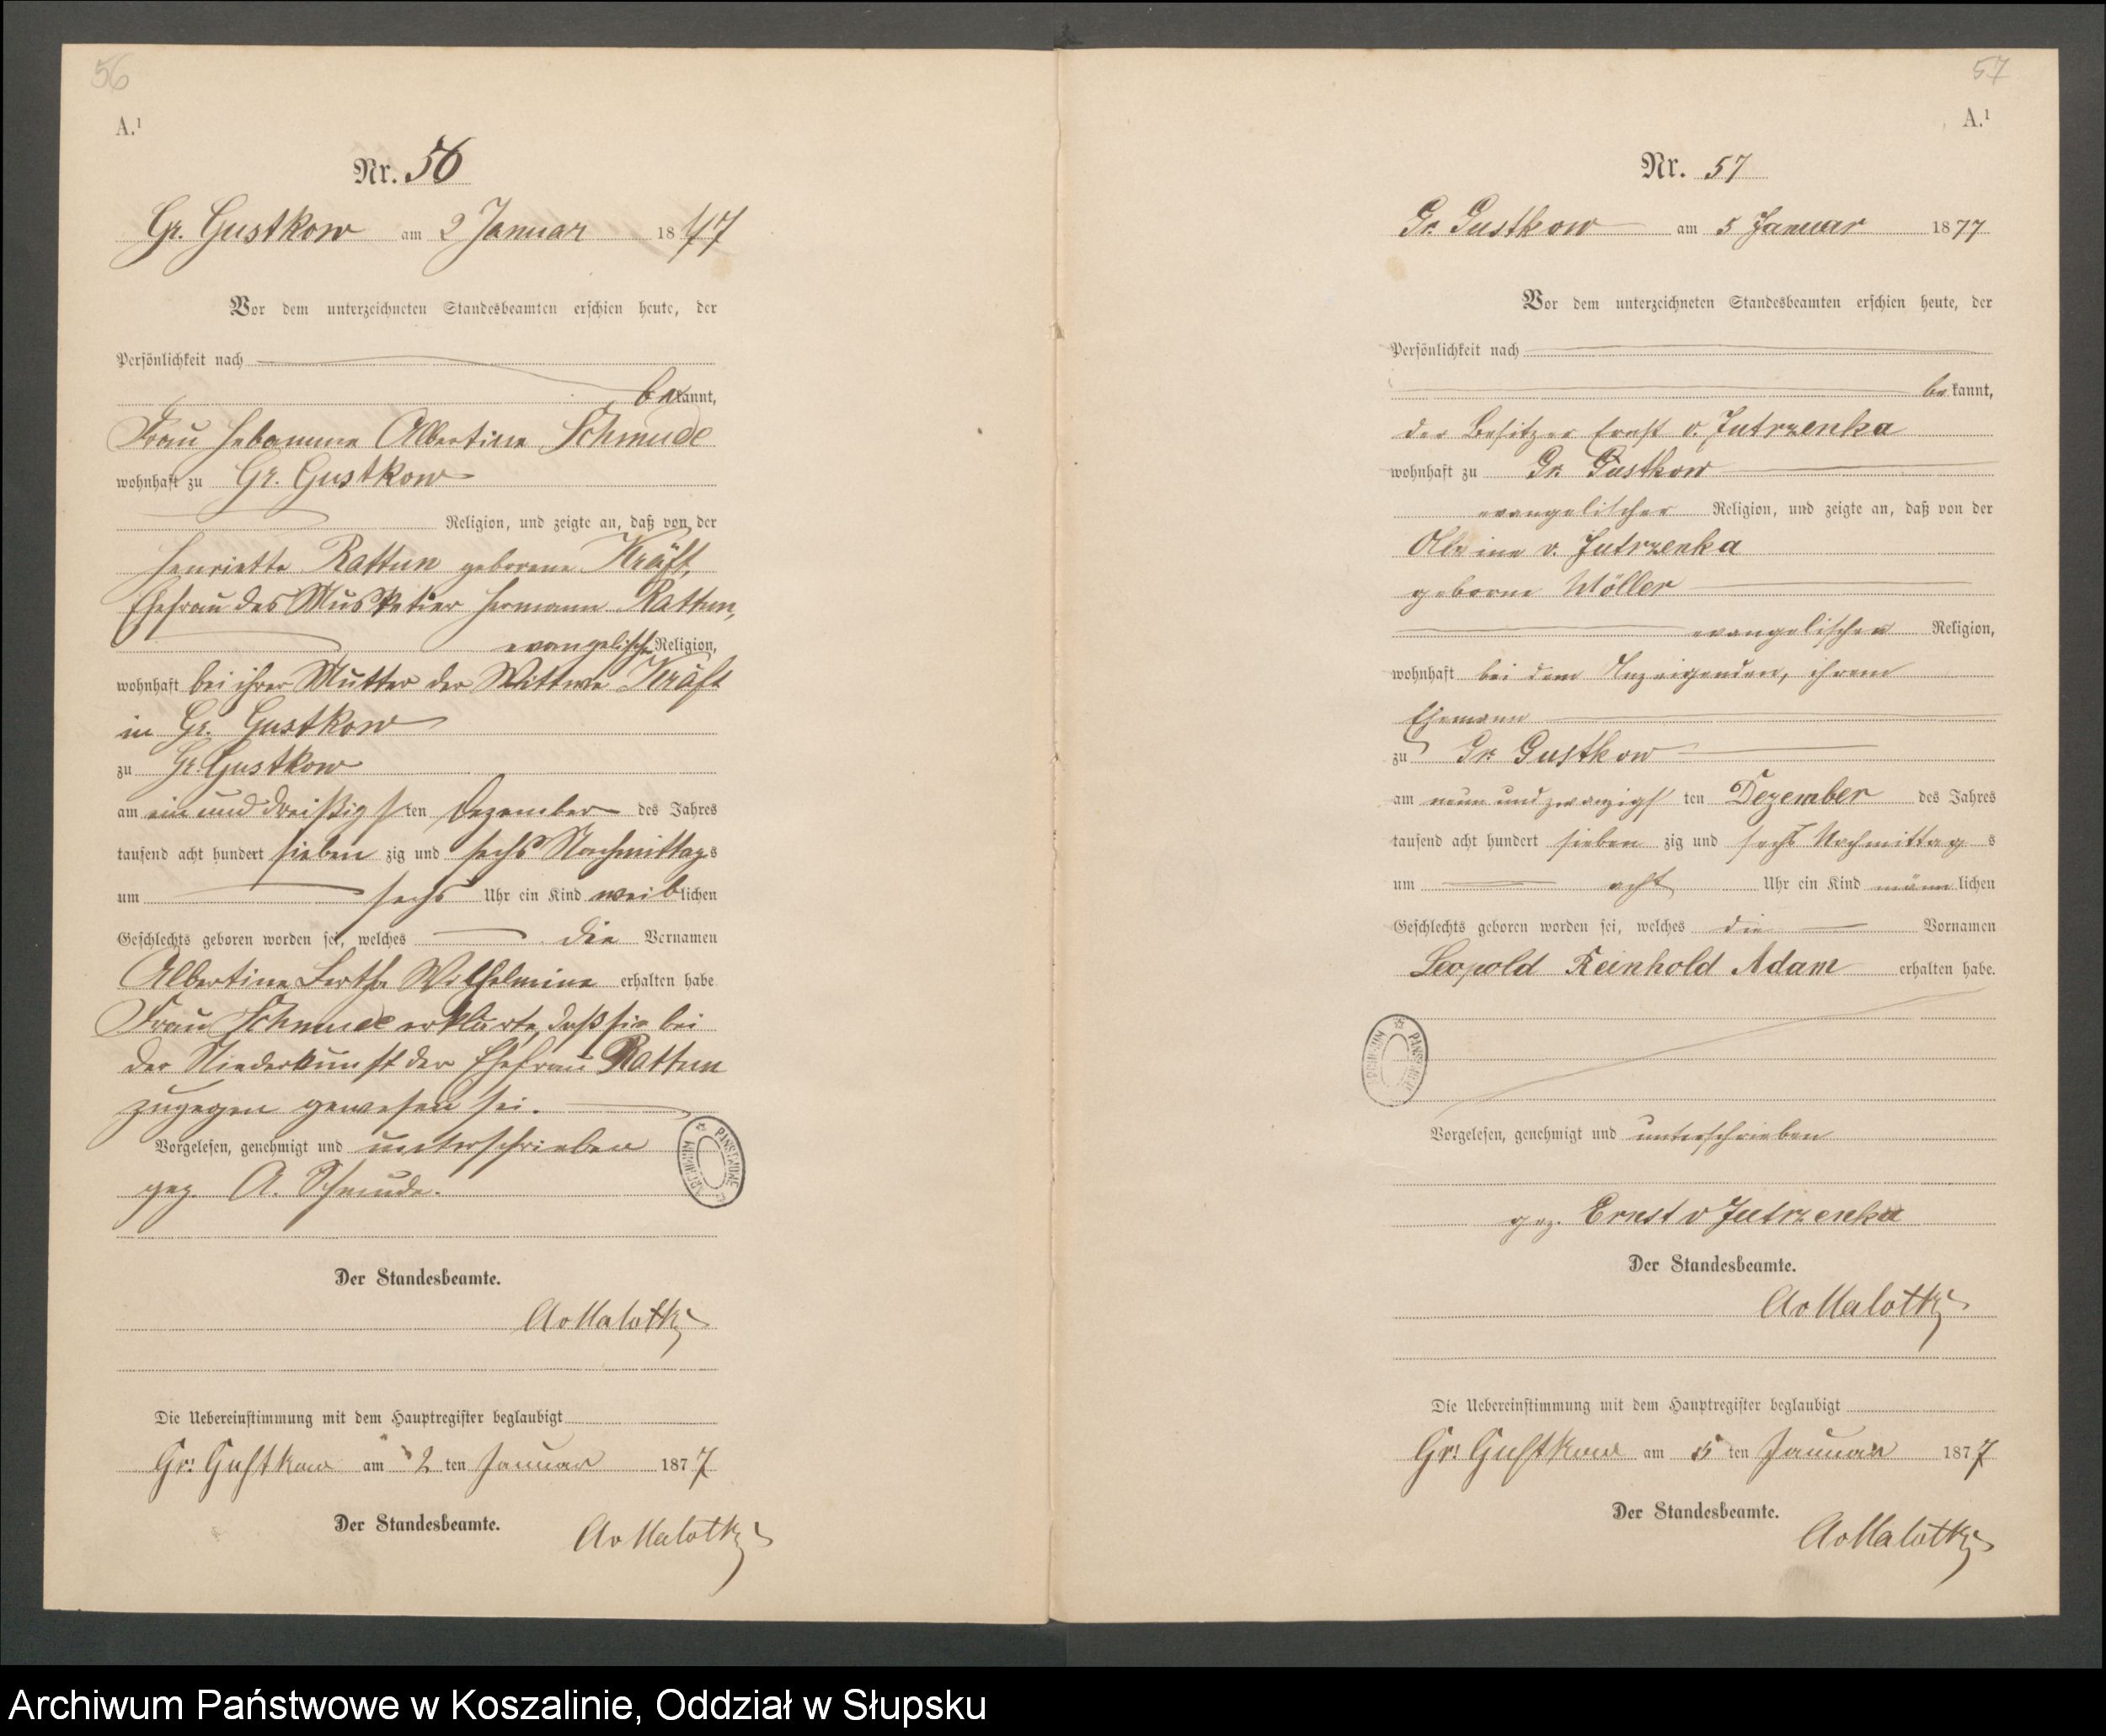 56
A.¹
Nr. 56
Gr. Gustkow am 2 Januar 1877
Vor dem unterzeichneten Standesbeamten erschien heute, der
Persönlichkeit nach
bekannt,
Frau Hebamme Albertine Schmude
wohnhaft zu Gr. Gustkow
Religion, und zeigte an, daß von der
Henriette Rattun geborene Kräft,
Ehefrau des Musketier Hermann Rattun,
evangelischer Religion,
wohnhaft bei ihrer Mutter der Wittwe Kräft
in Gr. Gustkow
zu Gr. Gustkow
am ein und dreißigsten Dezember des Jahres
tausend acht hundert siebenzig und sechs Nachmittags
um sechs Uhr ein Kind weiblichen
Geschlechts geboren worden sei, welches die Vornamen
Albertine Bertha Wilhelmine erhalten habe
Frau Schmude erklärte, daß sie bei
der Niederkunft der Ehefrau Rattun
zugegen gewesen sei.
Vorgelesen, genehmigt und unterschrieben
gez. A. Schmude.
Der Standesbeamte.
AvMalotky
Die Uebereinstimmung mit dem Hauptregister beglaubigt
Gr: Gustkow am 2 ten Januar 1877
Der Standesbeamte.
AvMalotky
57
A.¹
Nr. 57
Gr. Gustkow am 5 Januar 1877
Vor dem unterzeichneten Standesbeamten erschien heute, der
Persönlichkeit nach
bekannt,
der Besitzer Ernst v. Jutrzenka
wohnhaft zu Gr. Gustkow
evangelischer Religion, und zeigte an, daß von der
v. Jutrzenka
geborne Möller
evangelischer Religion,
wohnhaft bei dem Anzeigenden, ihrem
Ehemann
zu Gr. Gustkow
am neun und zwanzigsten Dezember des Jahres
tausend acht hundert siebenzig und sechs Nachmittags
um acht Uhr ein Kind männlichen
Geschlechts geboren worden sei, welches die Vornamen
Leopold Reinhold Adam erhalten habe.
Vorgelesen, genehmigt und unterschrieben
gez. Ernst v Jutrzenka
Der Standesbeamte.
AvMalotky
Die Uebereinstimmung mit dem Hauptregister beglaubigt
Gr: Gustkow am 5 ten Januar 1877
Der Standesbeamte.
AvMalotky
Archiwum Państwowe w Koszalinie, Oddział w Słupsku